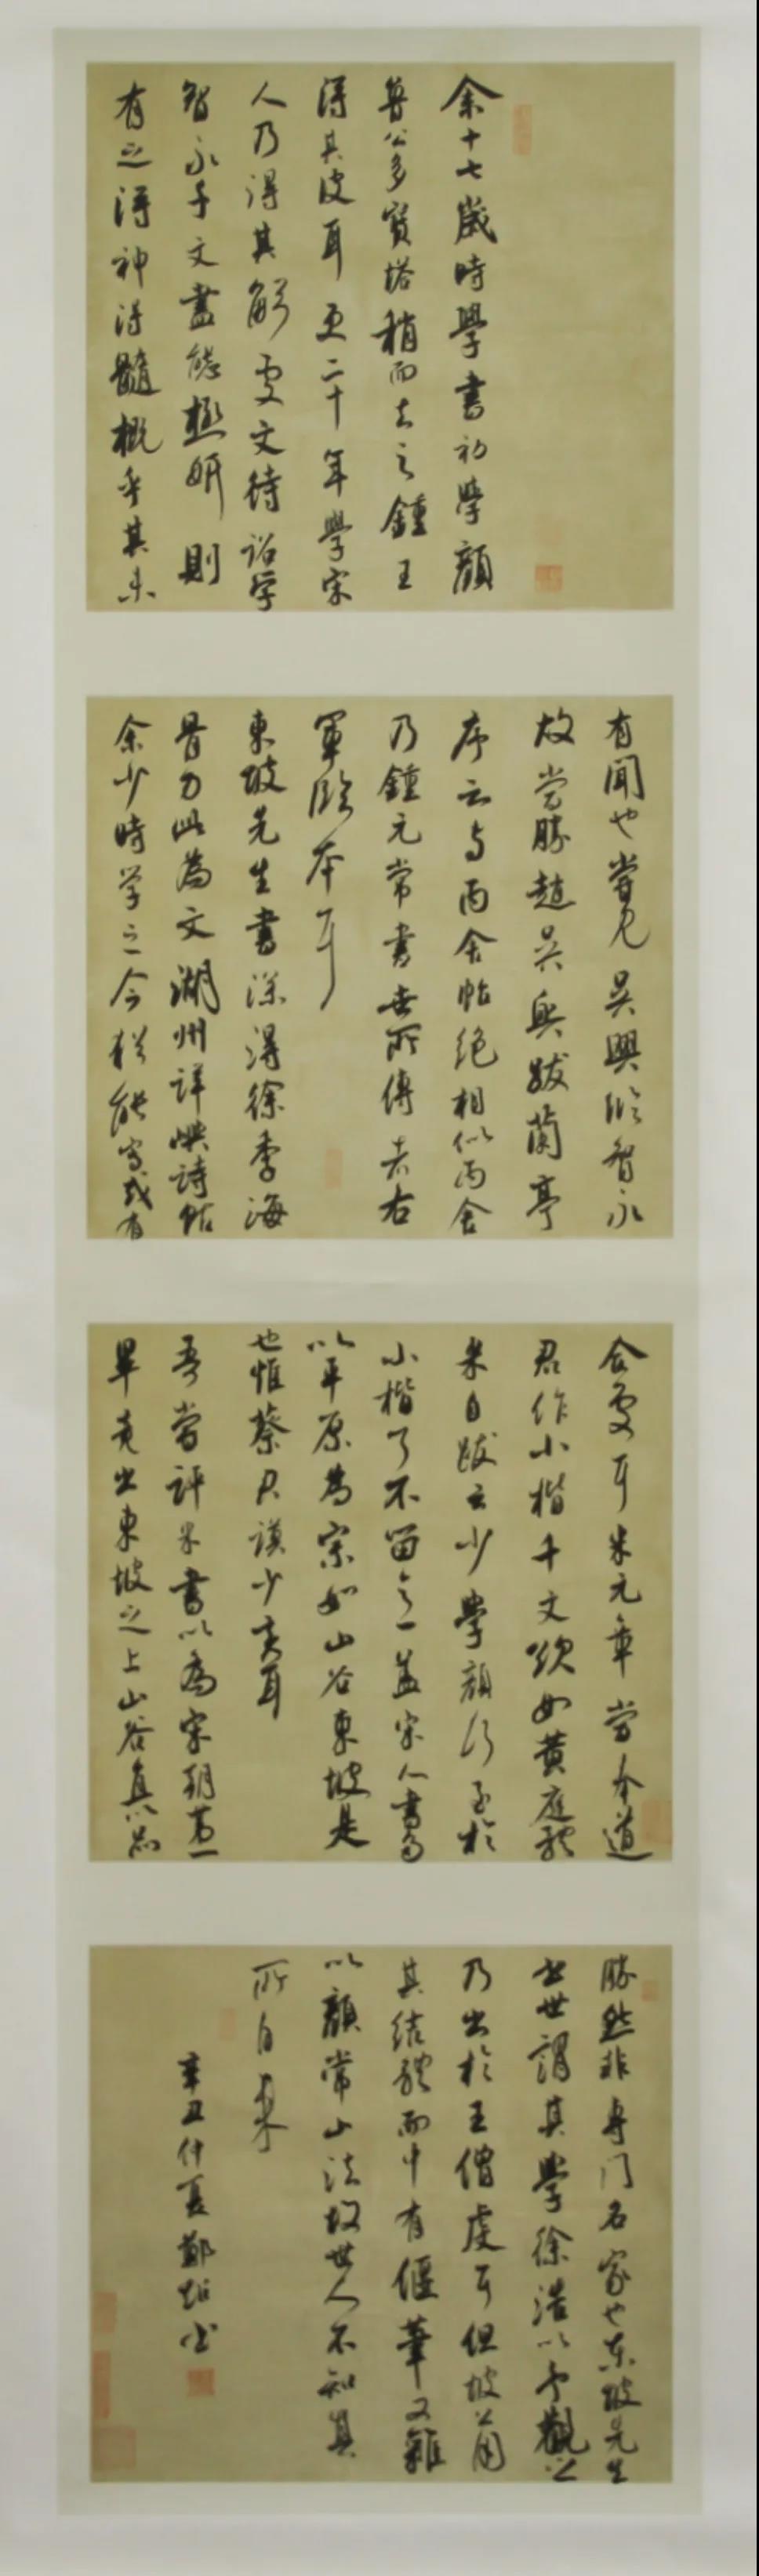 余十七歲時學書初學顏
魯公多寶塔稍而去之鍾王
得其皮耳更二十年學宋
人乃得其解處文待詔學
智永千文盡態極妍則
有之得神得髓概乎其未
有聞也嘗見吳興臨智永
故當勝趙吳興跋蘭亭
序云與丙舍帖絕相似丙舍
乃鍾元常書世所傳者右
軍臨本耳
東坡先生書深得徐季海
骨力此為文湖州詳懊詩帖
余少時學之今猶能寫或有
合處耳米元章嘗奉道
君作小楷千文欲如黃庭體
米自跋云少學顏行至於
小楷了不留意蓋宋人書多
以平原為宗如山谷東坡是
也惟蔡君謨少變耳
吾嘗評米書以為宋朝第一
畢竟出東坡之上山谷真以品
勝然非專門名家也東坡先生
書世謂其學徐浩以予觀之
乃出於王僧虔耳但坡用
其結體而中有偃筆又雜
以顏常山法故世人不知其
所自來
辛丑仲夏鄭 書